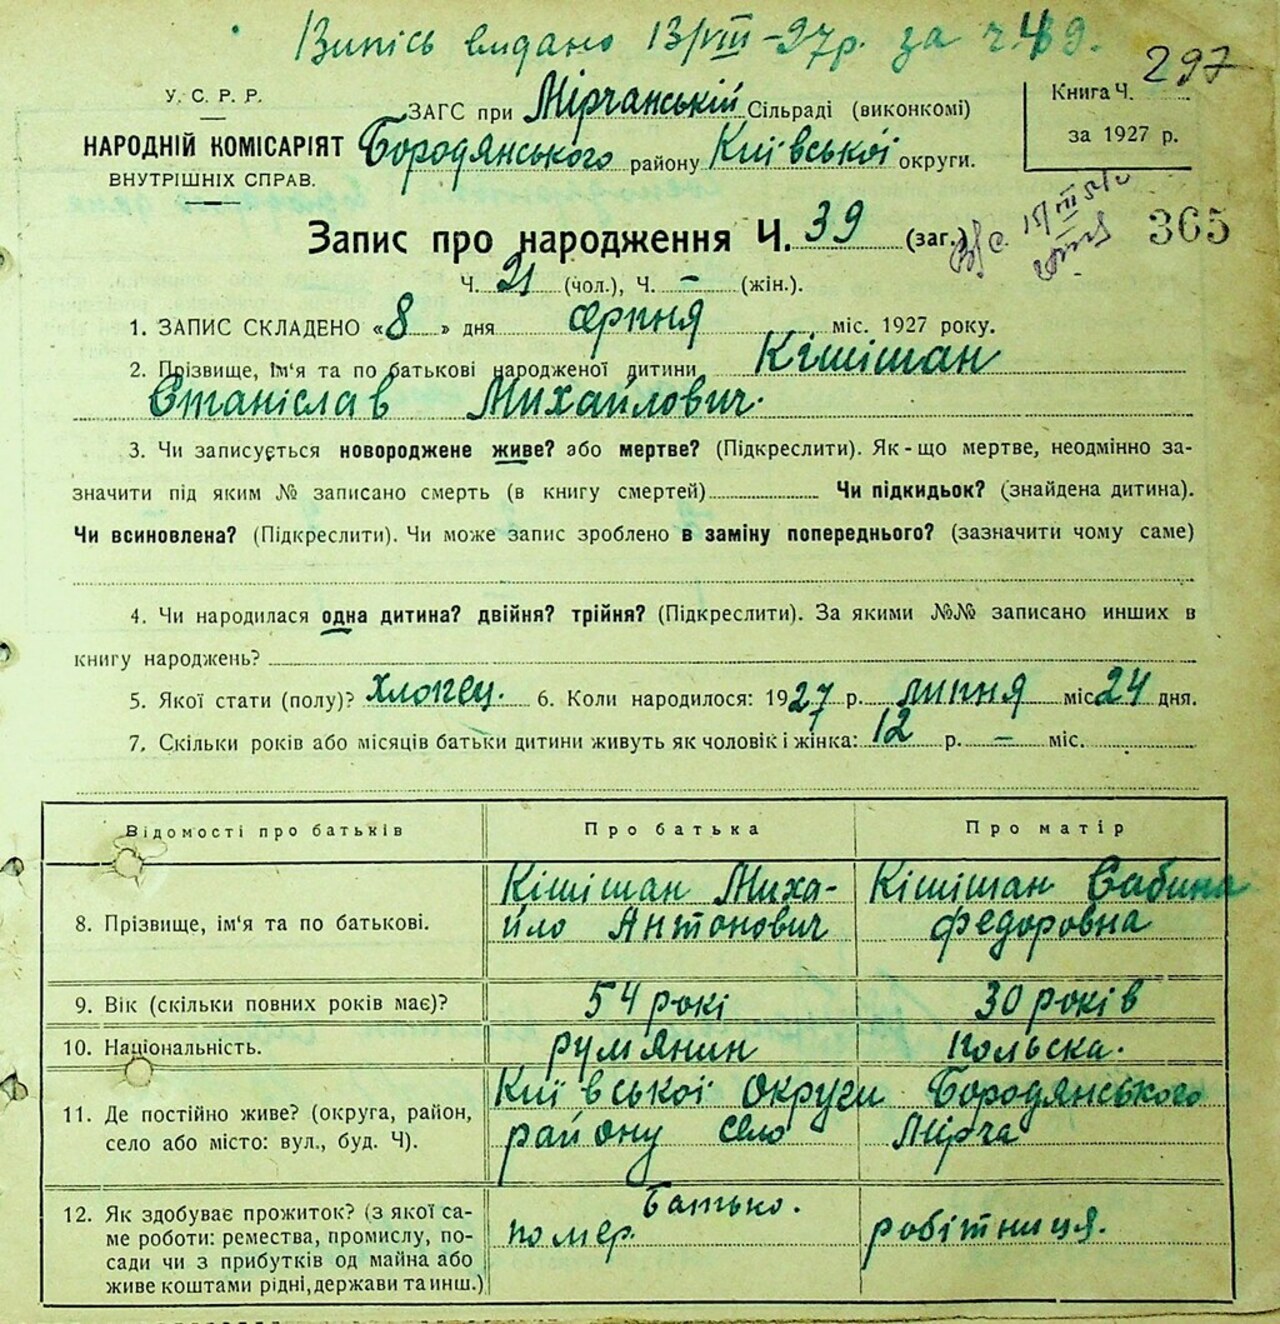 Випісь видано 13/VIII-27р. за ч. 49.
297
У. С. Р. Р.
НАРОДНІЙ КОМІСАРІЯТ
ВНУТРІШНІХ СПРАВ.
ЗАГС при Мірчанській Сільраді (виконкомі)
Бородянського району Київської округи.
Книга Ч.
за 1927 р.
365
Запис про народження Ч. 39 (заг.)
Ч. 21 (чол.), Ч. – (жін.).
1. ЗАПИС СКЛАДЕНО «8» дня серпня міс. 1927 року.
2. Прізвище, ім'я та по батькові народженої дитини Кішішан
Станіслав Михайлович.
3. Чи записується новороджене живе? або мертве? (Підкреслити). Як-що мертве, неодмінно за-
значити під яким № записано смерть (в книгу смертей) Чи підкидьок? (знайдена дитина).
Чи всиновлена? (Підкреслити). Чи може запис зроблено в заміну попереднього? (зазначити чому саме)
4. Чи народилася одна дитина? двійня? трійня? (Підкреслити). За якими №№ записано инших в
книгу народжень?
5. Якої стати (полу)? хлопец. 6. Коли народилося: 1927 р. липня міс 24 дня.
7. Скільки років або місяців батьки дитини живуть як чоловік і жінка: 12 р. – міс.
Відомості про батьків Про батька Про матір
8. Прізвище, ім'я та по батькові.
Кішішан Миха-
йло Антонович
Кішішан Сабина
Федоровна
9. Вік (скільки повних років має)? 54 рокі 30 років
10. Національність. румянин польска.
11. Де постійно живе? (округа, район,
село або місто: вул., буд. Ч).
Київської округи Бородянського
району село Мірча
12. Як здобуває прожиток? (з якої са-
ме роботи: ремества, промислу, по-
сади чи з прибутків од майна або
живе коштами рідні, держави та инш.)
Батько.
помер.
робітниця.